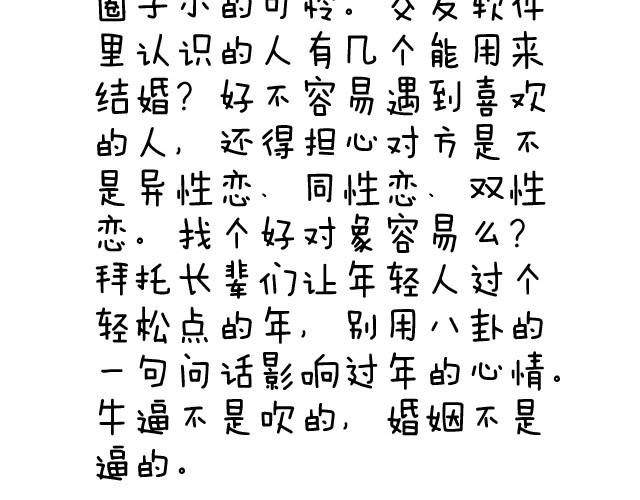 圈子小的可怜。交友软件
里认识的人有几个能用来
结婚？好不容易遇到喜欢
的人，还得担心对方是不
是异性恋、同性恋、双性
恋。找个好对象容易么？
拜托长辈们让年轻人过个
轻松点的年，别用八卦的
一句问话影响过年的心情。
牛逼不是吹的，婚姻不是
逼的。